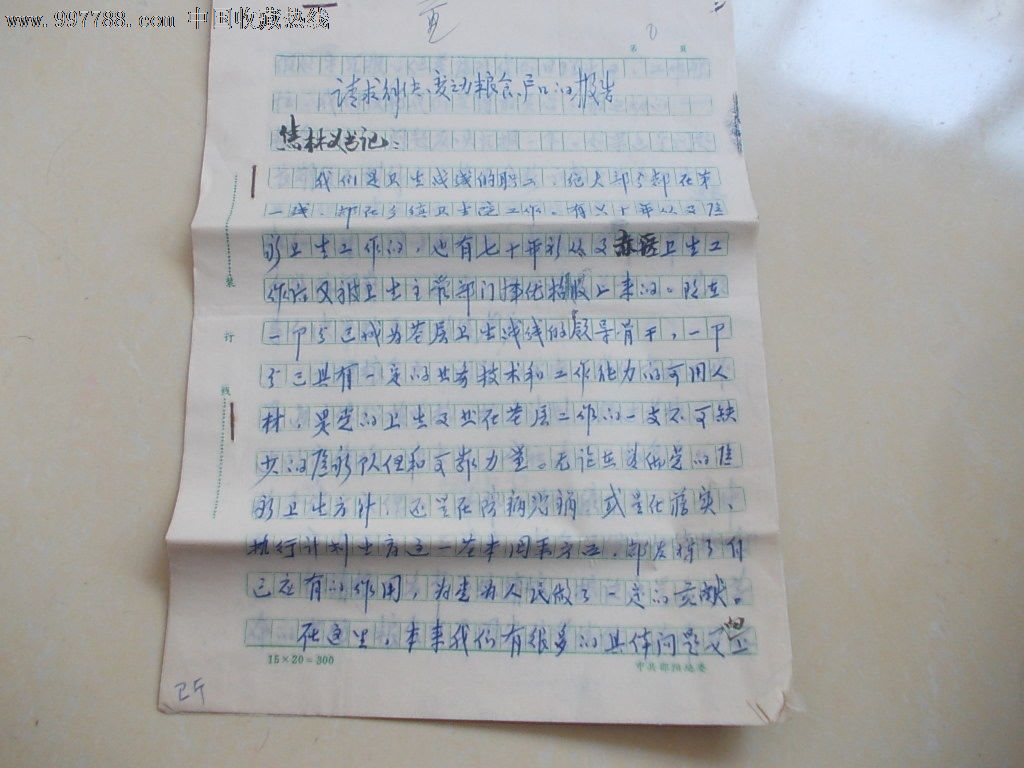 www.997788.com 中国收藏热线
第 页
请求解决变动粮食户口的报告
林义书记：
我们是卫生战线的职工，绝大部分都在第
一线，都在乡镇卫生院工作。有六十年代
卫生工作的，也有七十年代从 赤医卫生工
作后又被卫生主管部门择优招收上来的。现在
一部分已成为基层卫生战线的领导骨干，一部
分已具有一定的业务技术和工作能力的可用人
材，是党的卫生 在基层工作的一支不可缺
少的医务队伍和可靠力量。无论在
卫生方针，还是在防病治病 或是在落实、
执行计划生育这一基本国策方面，都发挥了自
己应有的作用，为 人民做了一定的贡献。
在这里，本来我们有很多的具体问题 向上
15×20=300
中共邵阳地委
装
订
线